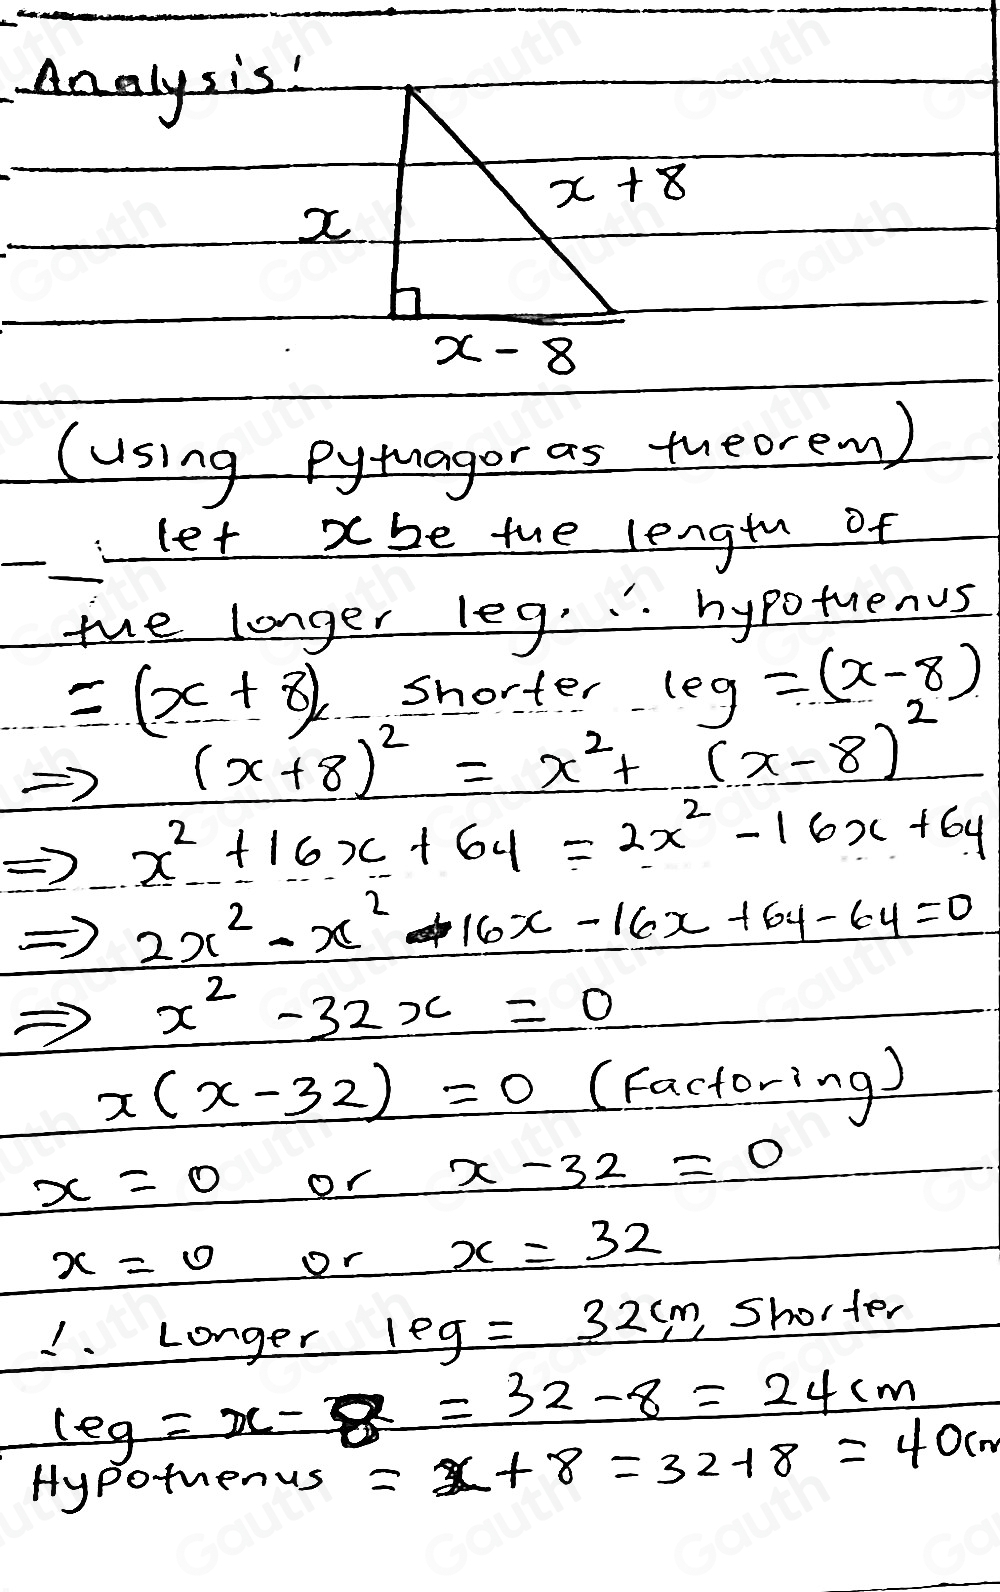 Analysis:
x
x + 8
x - 8
(using pythagoras theorem)
let x be the length of
the longer leg. ∴ hypothenus
= (x + 8), shorter leg = (x - 8)
⇒ (x + 8)² = x² + (x - 8)²
⇒ x² + 16x + 64 = 2x² - 16x + 64
⇒ 2x² - x² - 16x - 16x + 64 - 64 = 0
⇒ x² - 32x = 0
x(x - 32) = 0 (Factoring)
x = 0 or x - 32 = 0
x = 0 or x = 32
∴ Longer leg = 32cm, Shorter
leg = x - 8 = 32 - 8 = 24cm
Hypothenus = x + 8 = 32 + 8 = 40cm